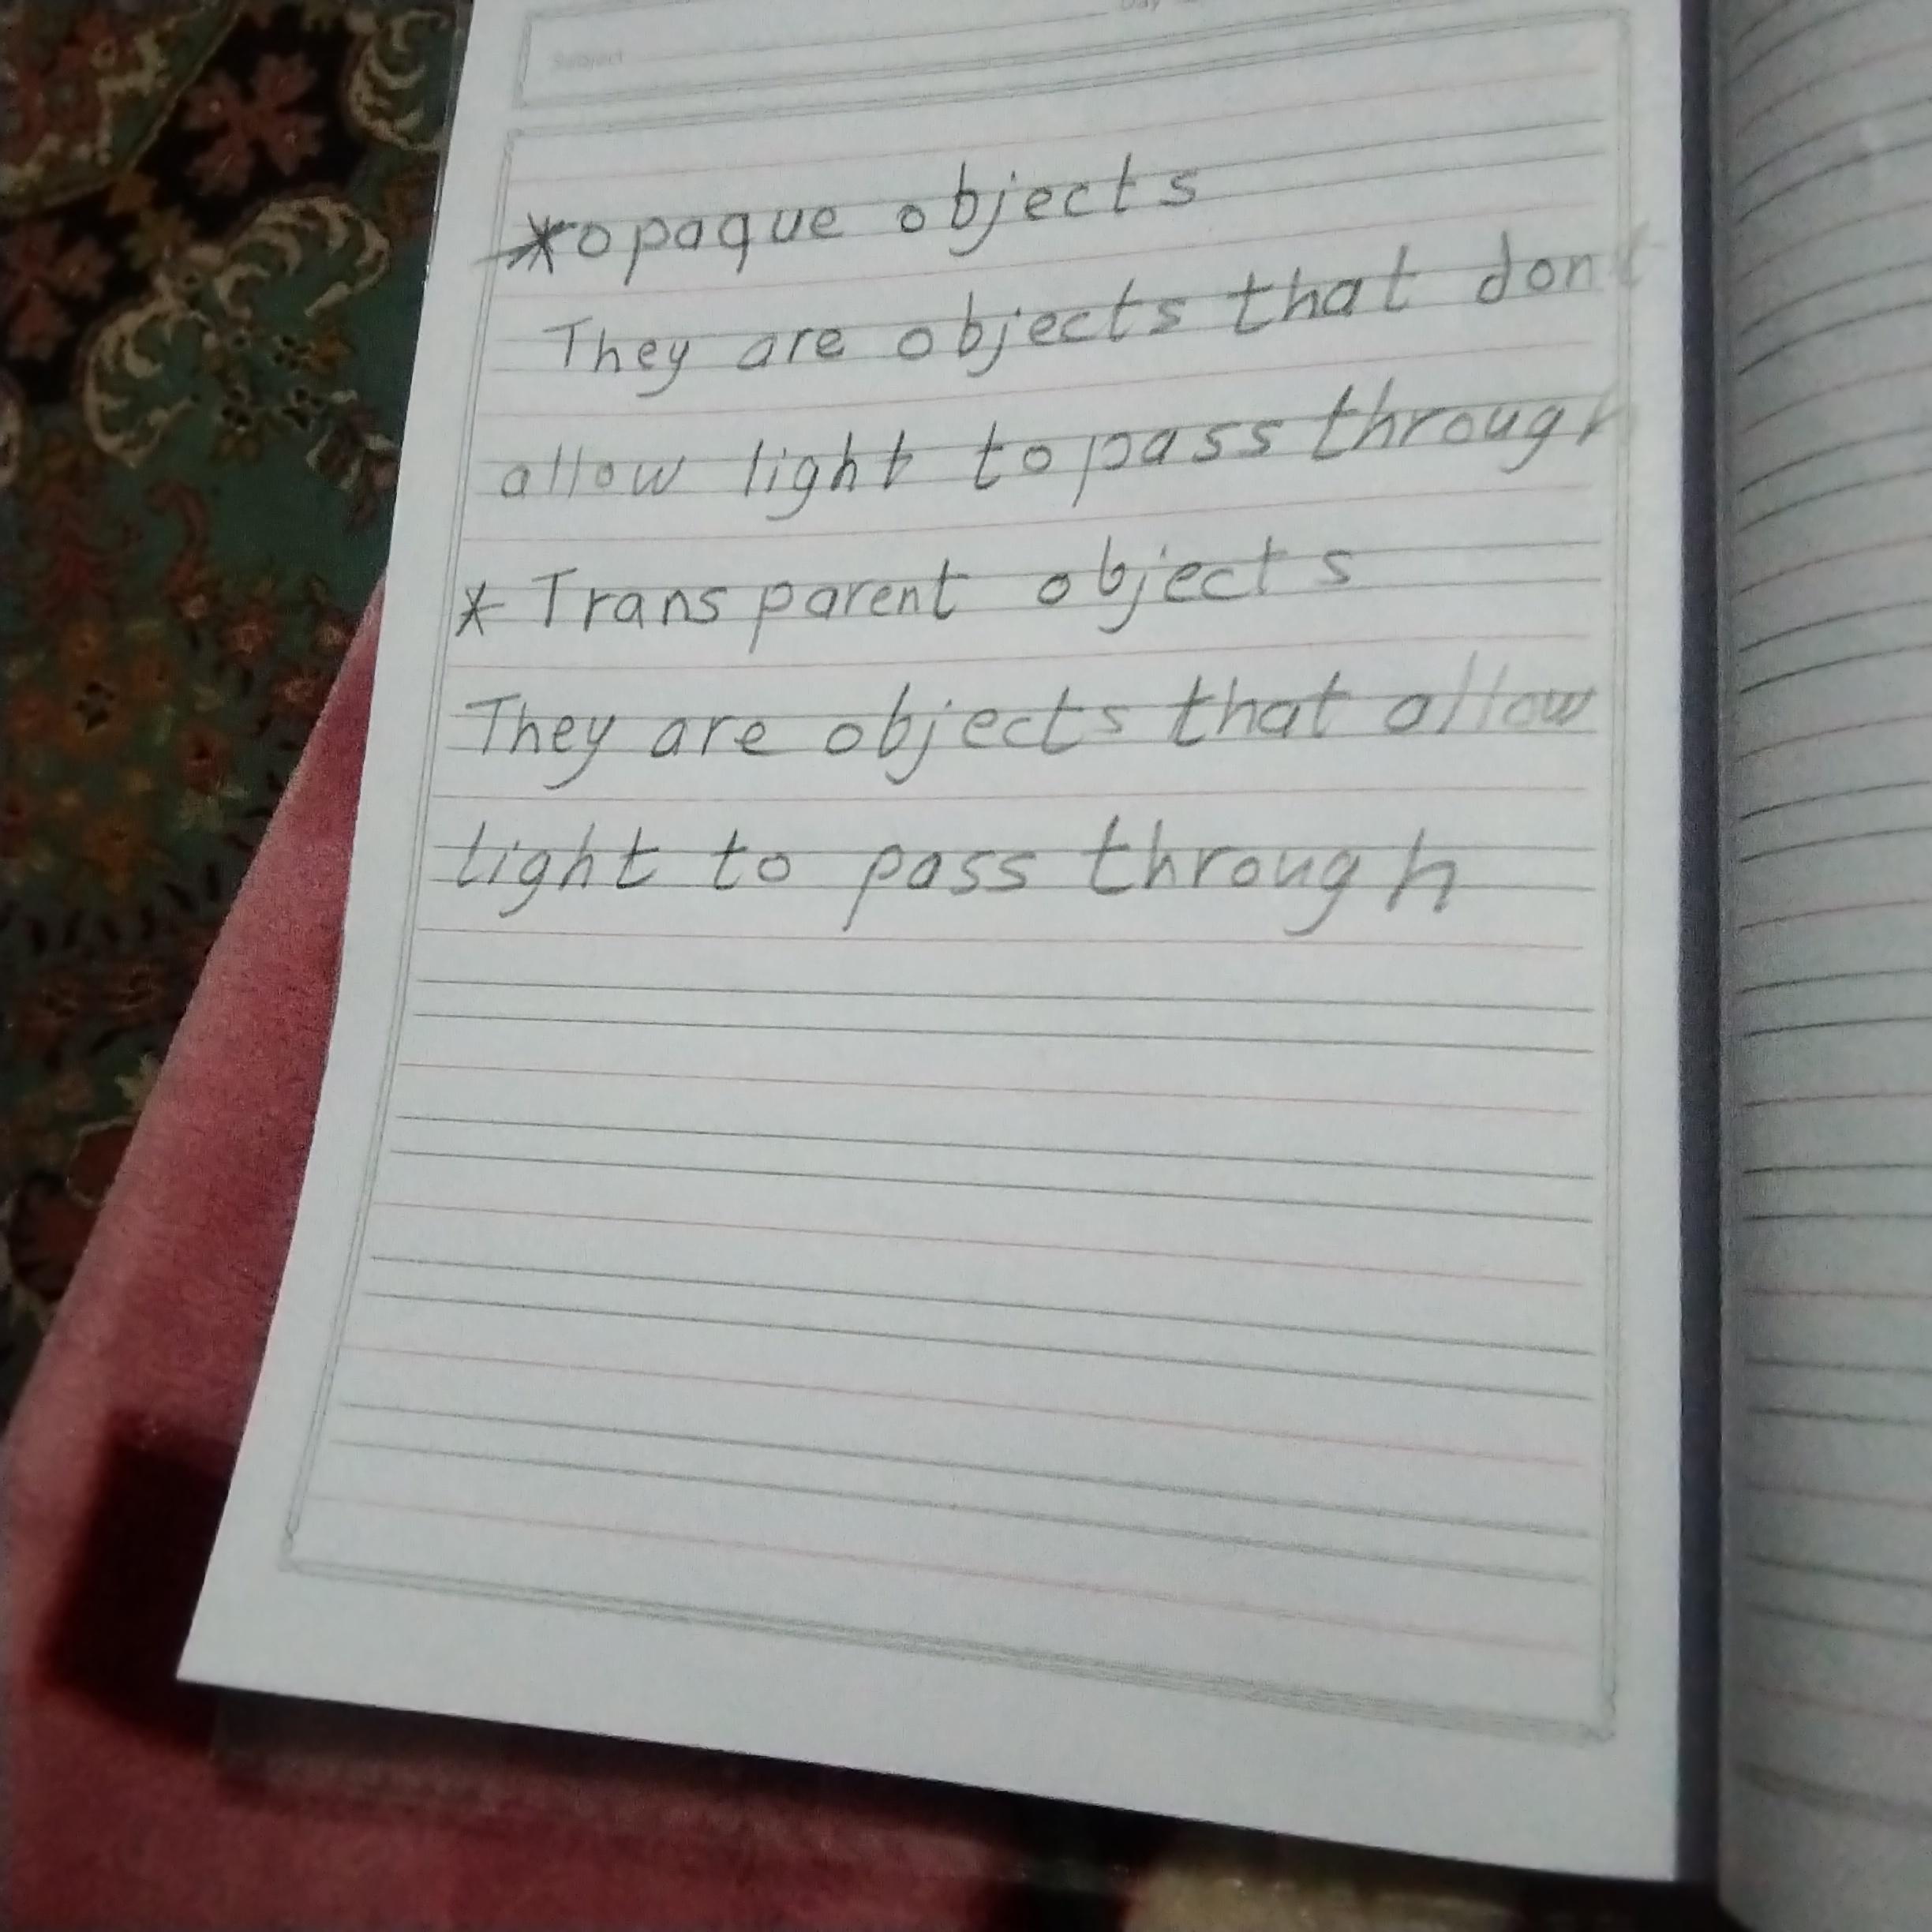 Day
Subject
*opaque objects
They are objects that dont
allow light to pass through
* Transparent objects
They are objects that allow
light to pass through